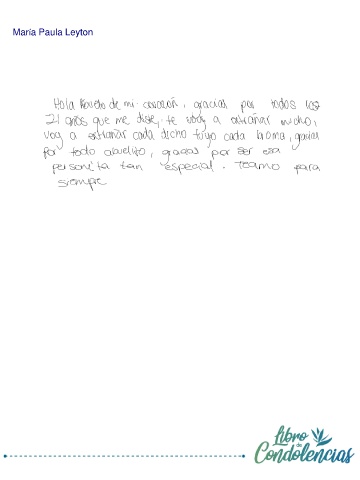 María Paula Leyton
Hola Abuelo de mi corazón, gracias por todos los
21 años que me diste, te voy a extrañar mucho,
voy a extrañar cada dicho tuyo cada broma, gracias
por todo abuelito, gracias por ser esa
personita tan especial. Te amo para
siempre
Libro
de
Condolencias